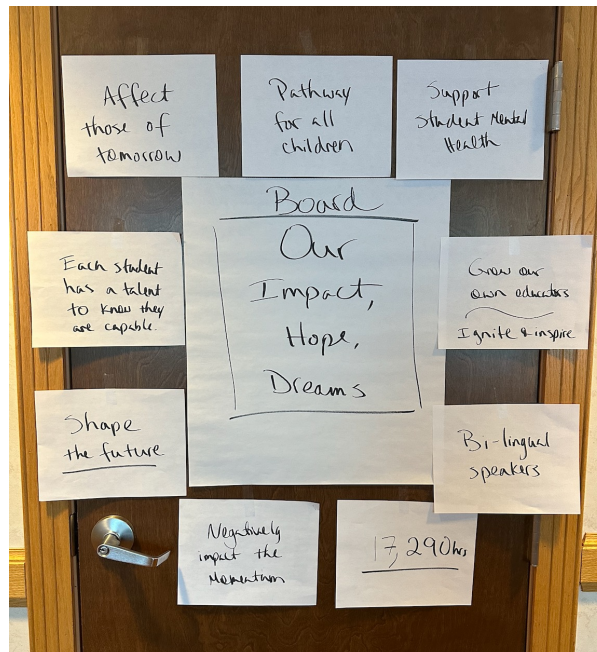 Affect
those of
tomorrow
Pathway
for all
children
Support
Student Mental
Health
Board
Our
Impact,
Hope,
Dreams
Each student
has a talent
to know they
are capable.
Grow our
own educators
Ignite & inspire
Shape
the future
Bi-lingual
speakers
Negatively
impact the
Momentum
17,290hrs